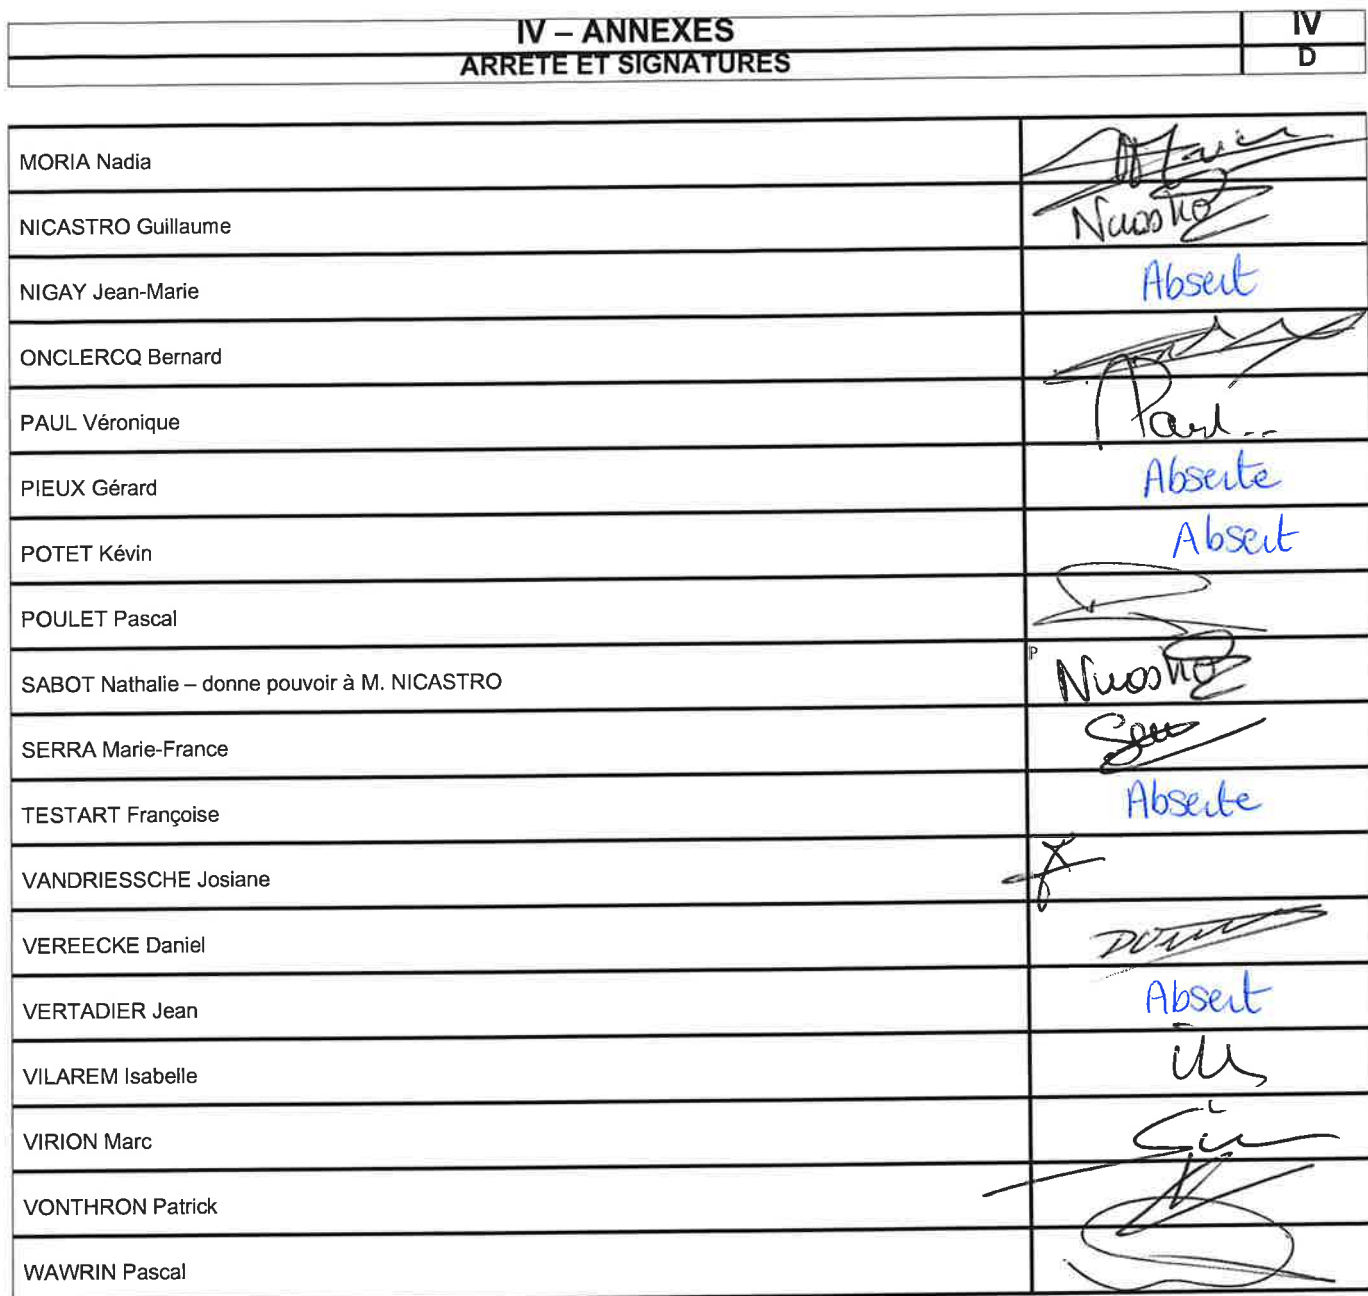 IV – ANNEXES IV
ARRETE ET SIGNATURES D
MORIA Nadia
NICASTRO Guillaume Nicastro
NIGAY Jean-Marie Absent
ONCLERCQ Bernard
PAUL Véronique Paul
PIEUX Gérard Absente
POTET Kévin Absent
POULET Pascal
SABOT Nathalie – donne pouvoir à M. NICASTRO P Nicastro
SERRA Marie-France
TESTART Françoise Absente
VANDRIESSCHE Josiane
VEREECKE Daniel
VERTADIER Jean Absent
VILAREM Isabelle
VIRION Marc
VONTHRON Patrick
WAWRIN Pascal